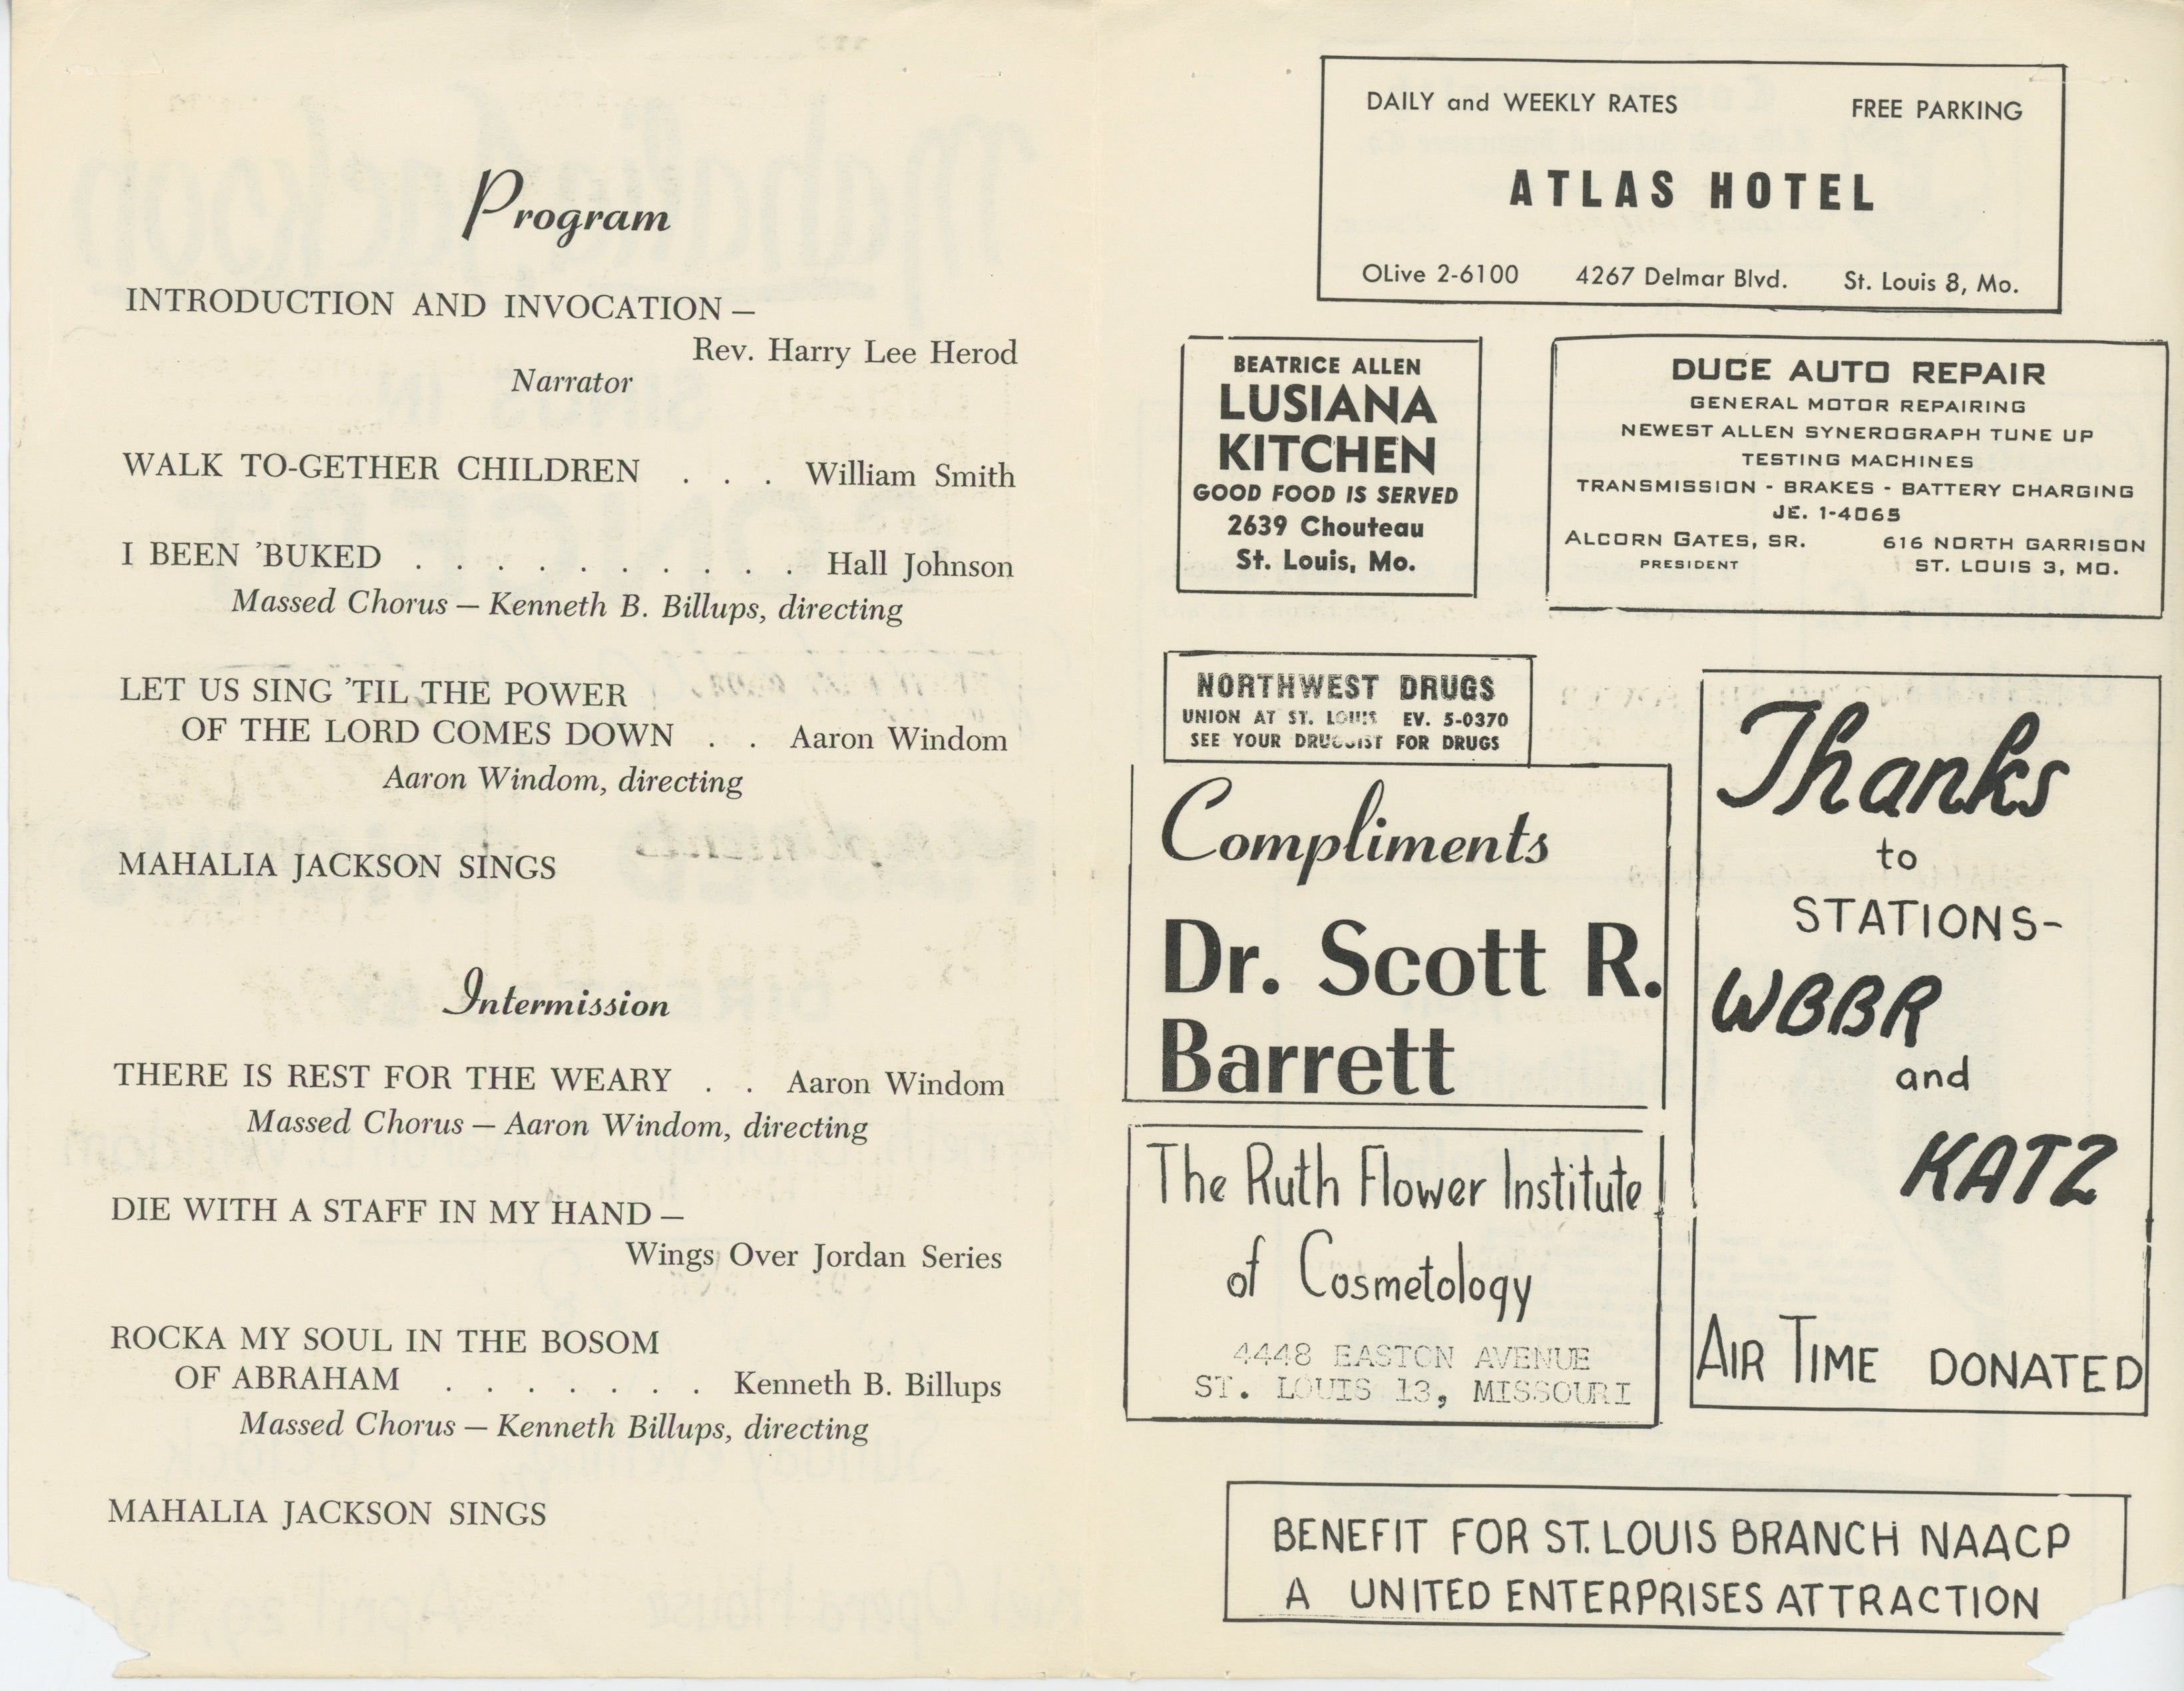 Program
INTRODUCTION AND INVOCATION —
Rev. Harry Lee Herod
Narrator
WALK TO-GETHER CHILDREN . . . William Smith
I BEEN 'BUKED . . . . . . . . . . Hall Johnson
Massed Chorus — Kenneth B. Billups, directing
LET US SING 'TIL THE POWER
OF THE LORD COMES DOWN . . Aaron Windom
Aaron Windom, directing
MAHALIA JACKSON SINGS
Intermission
THERE IS REST FOR THE WEARY . . Aaron Windom
Massed Chorus — Aaron Windom, directing
DIE WITH A STAFF IN MY HAND —
Wings Over Jordan Series
ROCKA MY SOUL IN THE BOSOM
OF ABRAHAM . . . . . . . Kenneth B. Billups
Massed Chorus — Kenneth Billups, directing
MAHALIA JACKSON SINGS
DAILY and WEEKLY RATES FREE PARKING
ATLAS HOTEL
OLive 2-6100 4267 Delmar Blvd. St. Louis 8, Mo.
BEATRICE ALLEN
LUSIANA
KITCHEN
GOOD FOOD IS SERVED
2639 Chouteau
St. Louis, Mo.
DUCE AUTO REPAIR
GENERAL MOTOR REPAIRING
NEWEST ALLEN SYNEROGRAPH TUNE UP
TESTING MACHINES
TRANSMISSION - BRAKES - BATTERY CHARGING
JE. 1-4065
ALCORN GATES, SR. 616 NORTH GARRISON
PRESIDENT ST. LOUIS 3, MO.
NORTHWEST DRUGS
UNION AT ST. LOUIS EV. 5-0370
SEE YOUR DRUGGIST FOR DRUGS
Compliments
Dr. Scott R.
Barrett
The Ruth Flower Institute
of Cosmetology
4448 EASTON AVENUE
ST. LOUIS 13, MISSOURI
Thanks
to
STATIONS-
WBBR
and
KATZ
AIR TIME DONATED
BENEFIT FOR ST. LOUIS BRANCH NAACP
A UNITED ENTERPRISES ATTRACTION